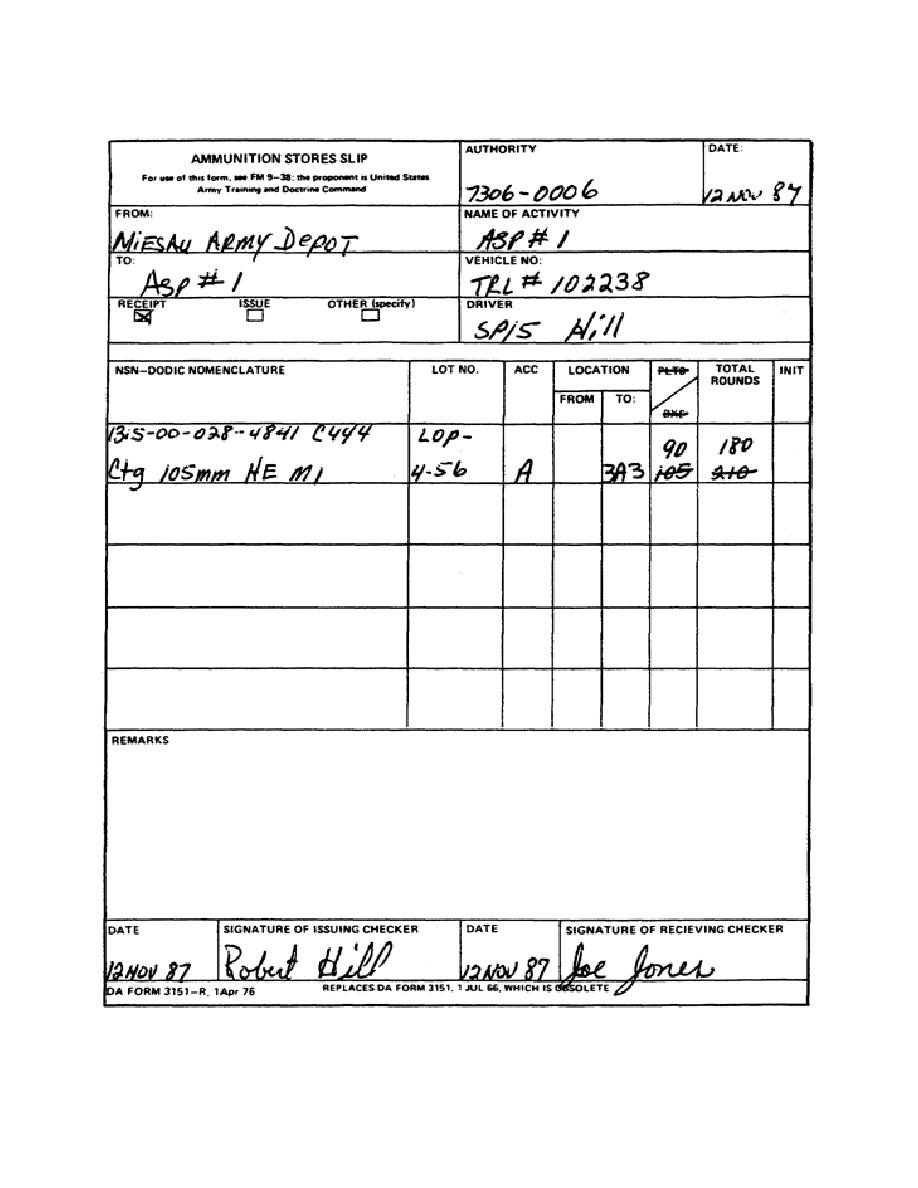 AMMUNITION STORES SLIP
For use of this form, see FM 9-38; the proponent is United States
Army Training and Doctrine Command
AUTHORITY
7306-0006
DATE:
12 NOV 87
FROM:
MIESAU ARMY DEPOT
NAME OF ACTIVITY
ASP # 1
TO:
ASP # 1
VEHICLE NO:
TRL # 102238
RECEIPT ISSUE OTHER (specify)
DRIVER
SP/5 Hill
NSN-DODIC NOMENCLATURE LOT NO. ACC LOCATION PLTS TOTAL INIT
ROUNDS
FROM TO:
BXS
1315-00-028-4841 C444 LOP- 90 180
Ctg 105mm HE M1 4-56 A 3A3 105 210
REMARKS
DATE SIGNATURE OF ISSUING CHECKER DATE SIGNATURE OF RECIEVING CHECKER
12 NOV 87 Robert Hill 12 NOV 87 Joe Jones
DA FORM 3151-R, 1Apr 76 REPLACES DA FORM 3151, 1 JUL 66, WHICH IS OBSOLETE